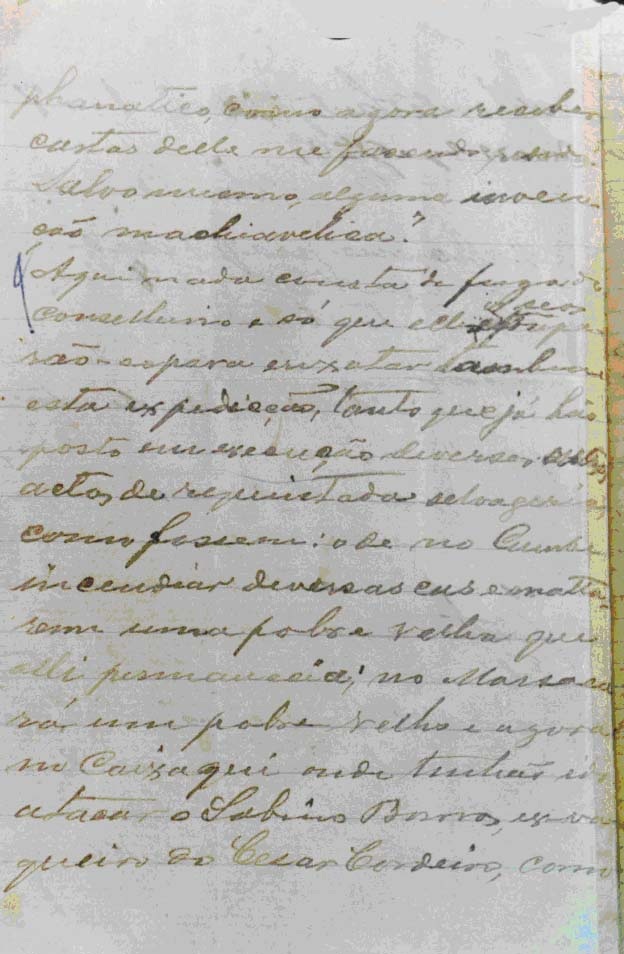 phanatico, como agora recebe
cartas delle me fasendo
Salvo mesmo, alguma inven
ção machiavelica?
Aqui nada consta de fuga do
Conselheiro e só que elle e seos
espera exzotar tambem
esta expedicção, tanto que já hão
posto em execução diversos
actos de requintada selvageria
como fossem: o de no Cumbe
incendiar diversas cas e matta
rem uma pobre velha que
alli permanecia; no Massaca
rá um pobre velho e agora
no Caixaqui onde tinhão ido
atacar o Sabino Barros, ex va
queiro do Cesar Cordeiro, com